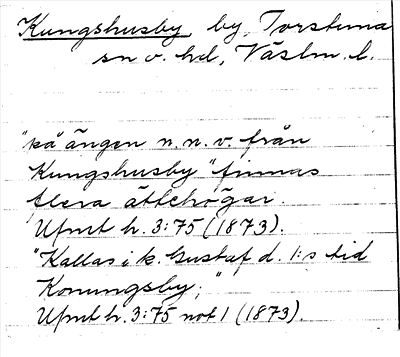 Kungshusby, by, Torstuna
sn o. hd, Västm. l.
"på ängen n. n. v. från
Kungshusby" finnas
flera ättehögar.
Upmt h. 3:75 (1873).
"Kallas i k. Gustaf d. 1:s tid
Konungsby;"
Upmt h. 3:75 not 1 (1873).